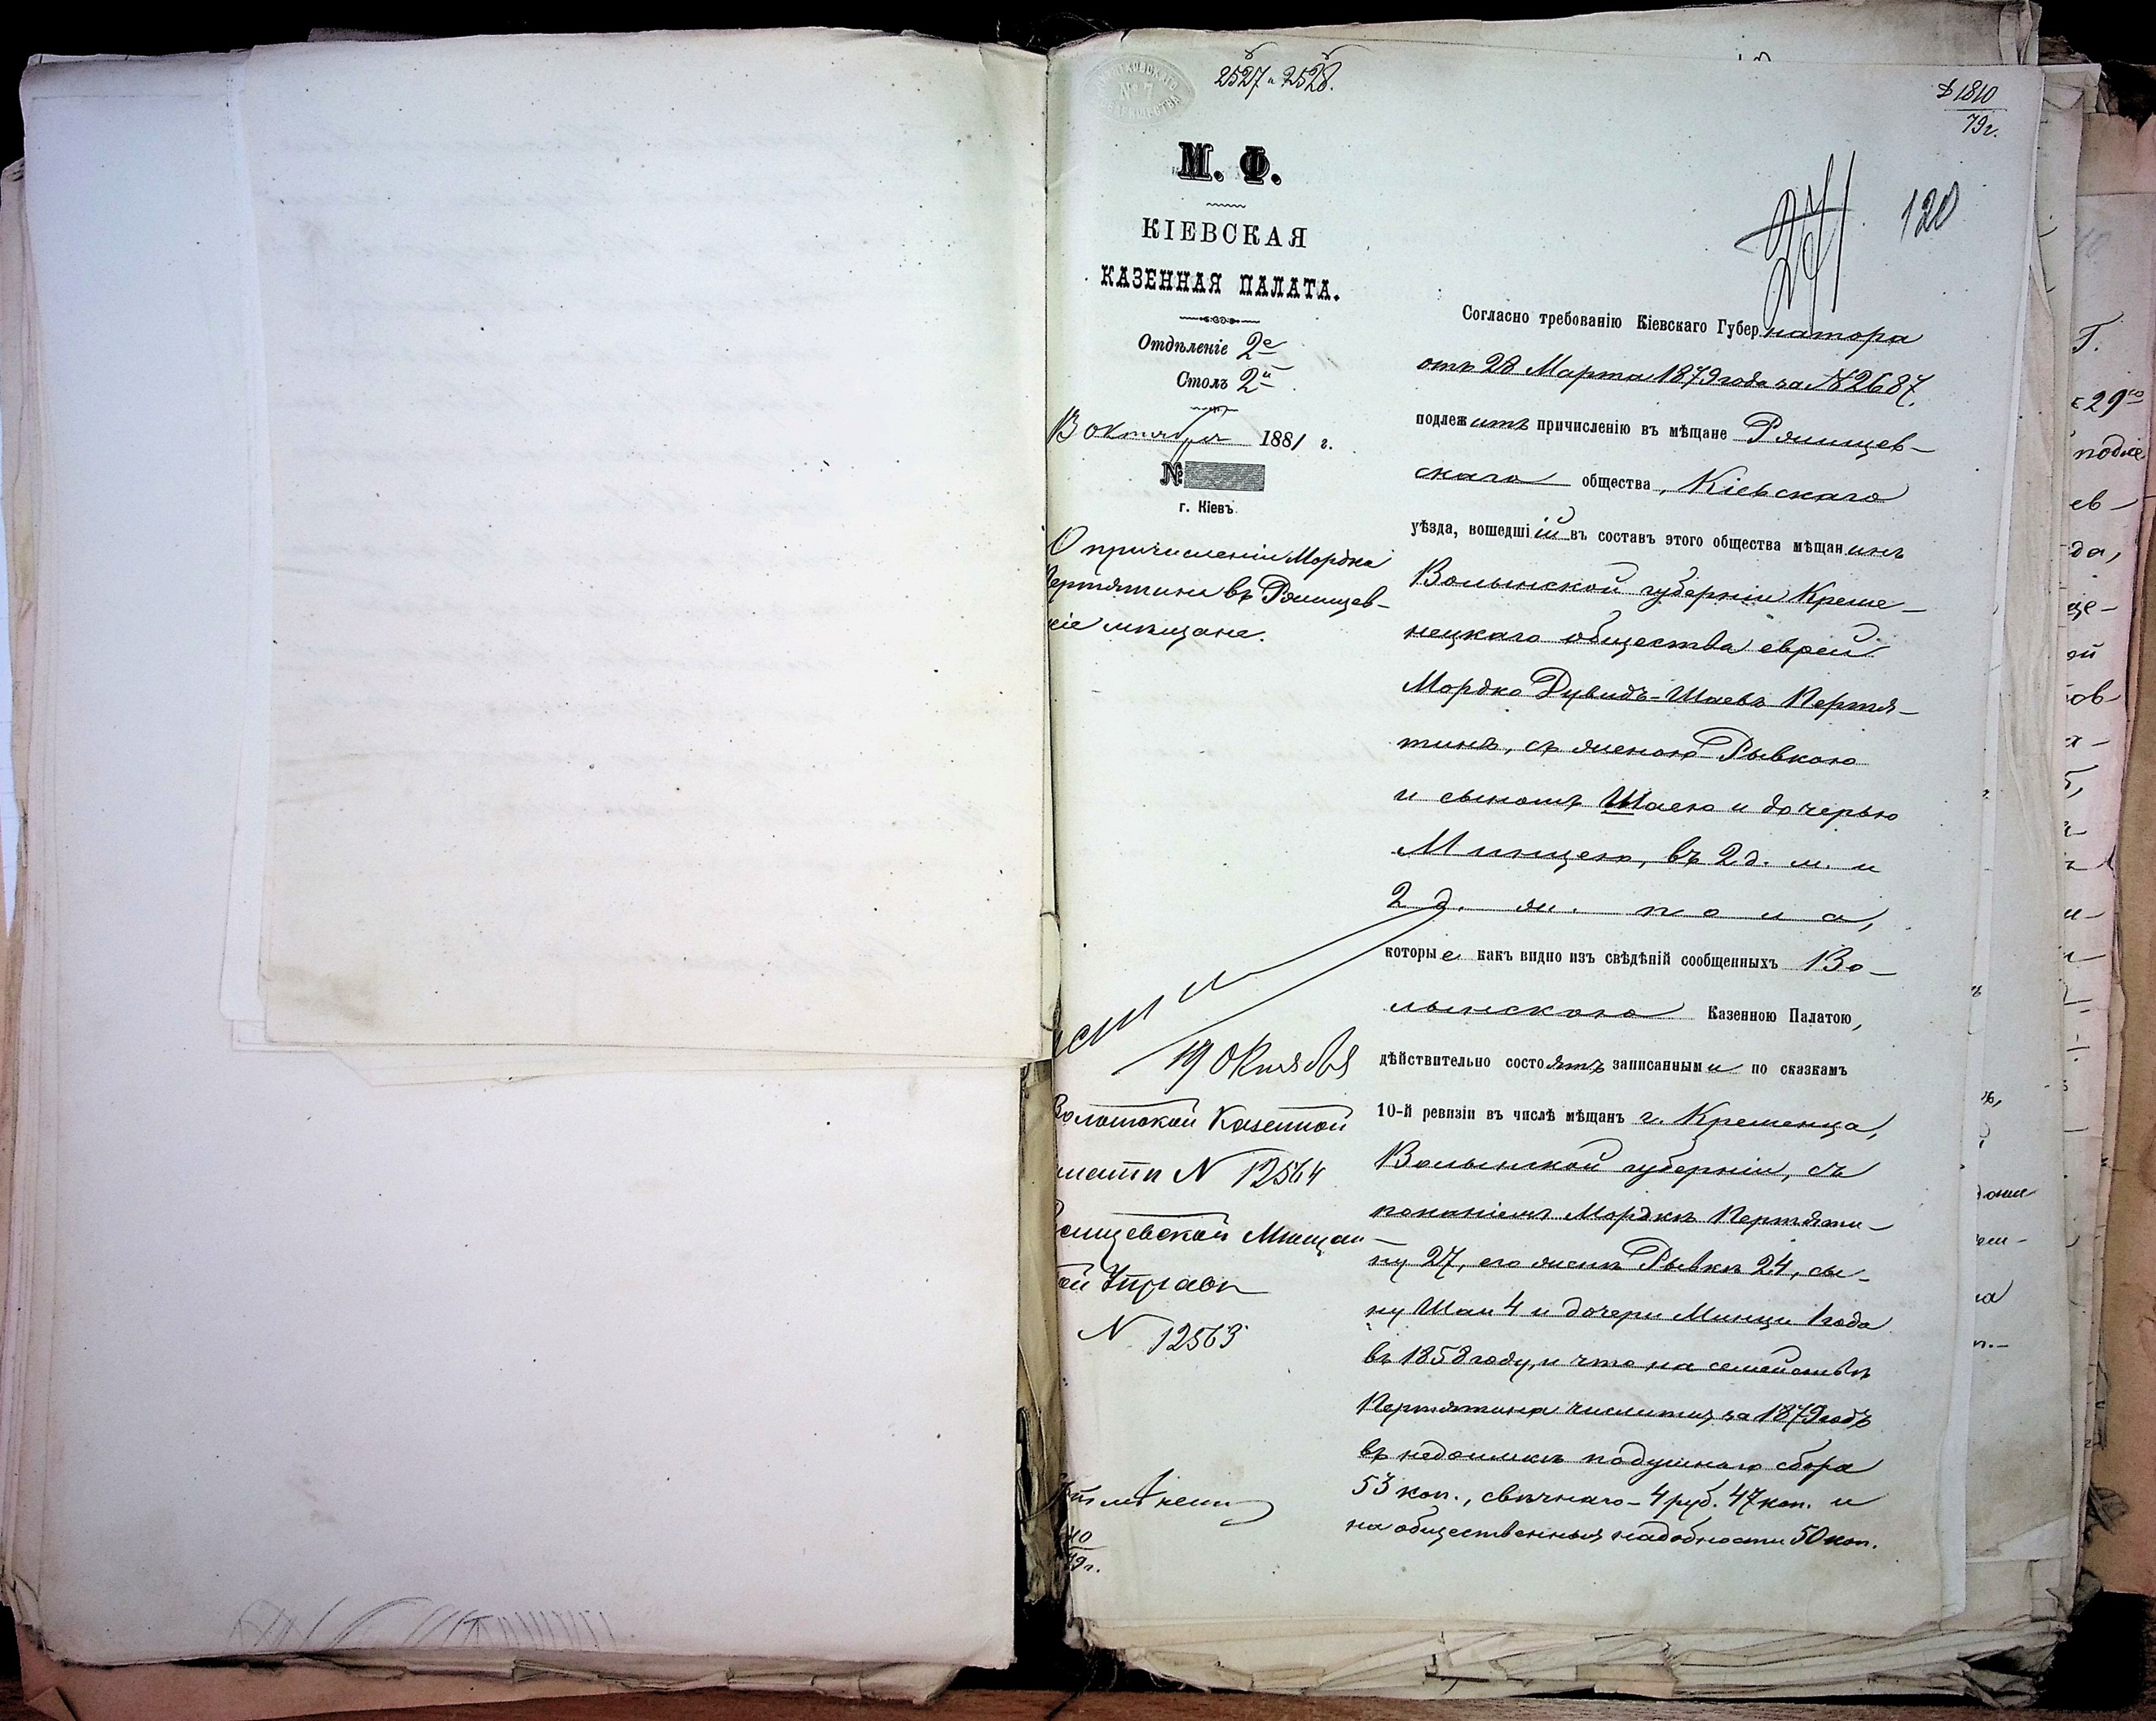 2527 и 2528.
1810
79 г.
120
М. Ф.
КІЕВСКАЯ
КАЗЕННАЯ ПАЛАТА.
Отдѣленіе 2е
Столъ 2й
Октября 1881 г.
№
г. Кіевъ
О причисленіи Мордка
Пертятина въ Ржищев-
кіе мѣщане.
19 Октября
Казенной
N 12564
Мѣщан-
ой Управѣ
N 12563
40
79 г.
Согласно требованію Кіевскаго Губернатора
отъ 28 Марта 1879 года за № 2687.
подлежитъ причисленію въ мѣщане Ржищев-
скаго общества, Кіевскаго
уѣзда, вошедшій въ составъ этого общества мѣщанинъ
Волынской губерніи Креме-
нецкаго общества еврей
Мордко Дувидъ-Шаевъ Пертя-
тинъ, съ женою Рывкою
и сыномъ Шаею и дочерью
Минцею, въ 2 д. м. и
2 д. ж. пола,
которые какъ видно изъ свѣдѣній сообщенныхъ Во-
лынскою Казенною Палатою,
дѣйствительно состоятъ записанными по сказкамъ
10-й ревизіи въ числѣ мѣщанъ г. Кременца,
Волынской губерніи, съ
показаніемъ Мордкѣ Пертяти-
ну 27, его женѣ Рывкѣ 24, сы-
ну Шаи 4 и дочери Минци 1 года
въ 1858 году, и что на семействѣ
Пертятина числится за 1879 годъ
въ недоимкѣ подушнаго сбора
53 коп., свѣчнаго - 4 руб. 47 коп. и
на общественныя надобности 50 коп.